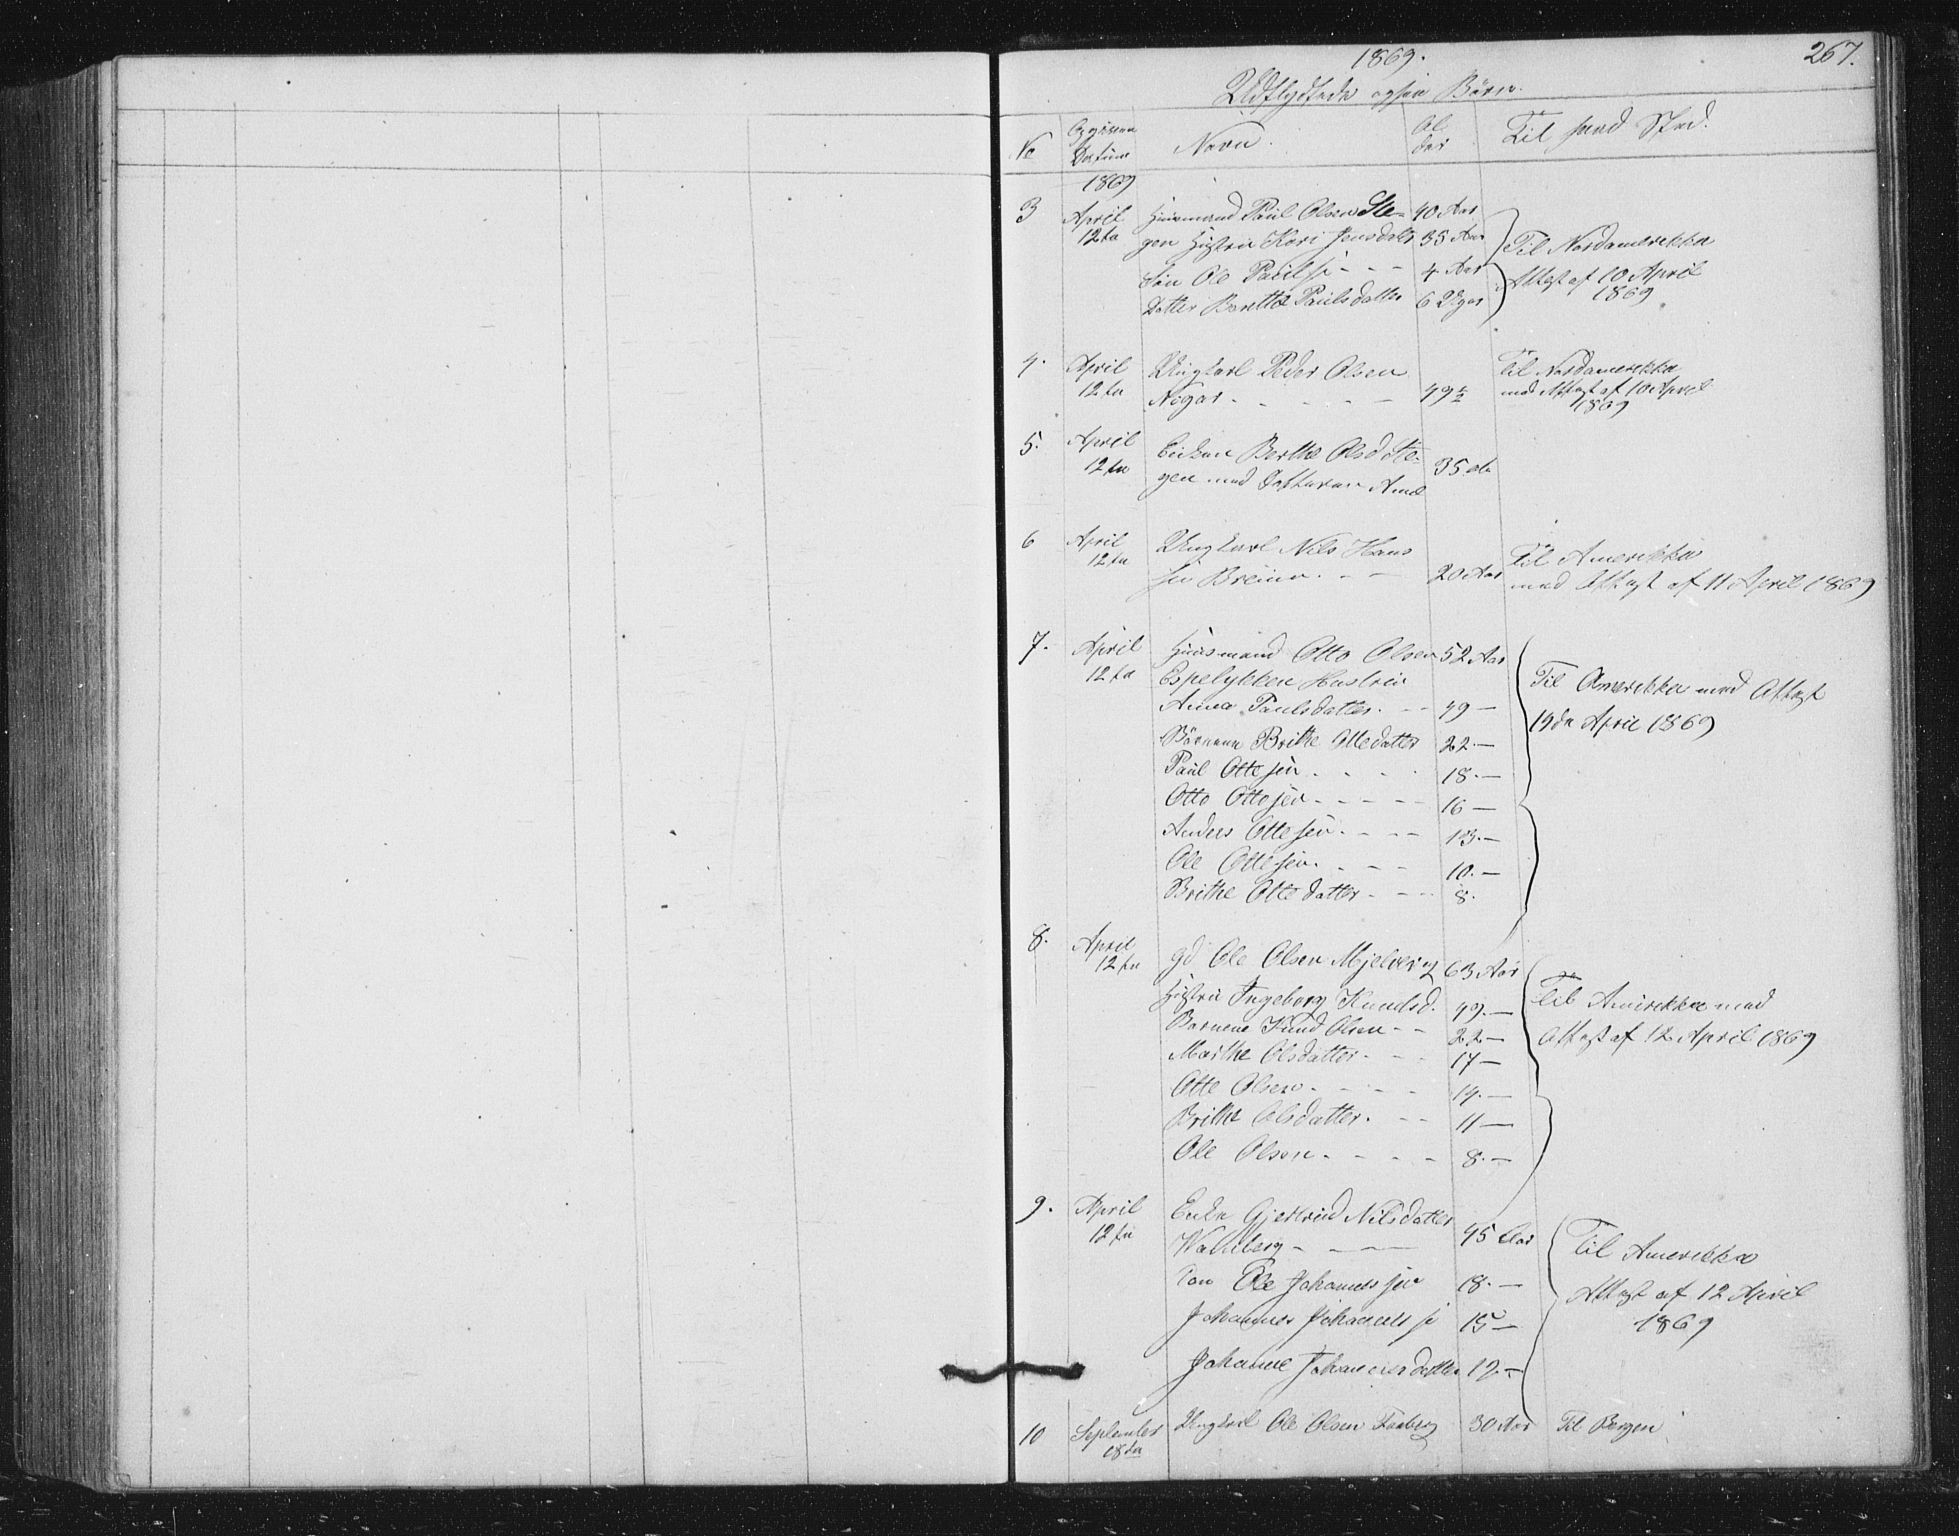 1869.
267.
Udflyttede Børn.
No Datum Navn. Al der Til hvad Sted.
1869
3 April Huusmand Paul Olsen Ste- 40 Aar
12te gen Hustru Kari Jensdatter 35 Aar Til Nordamerikka
Søn Ole Paulsen - - - 4 Aar Attest af 10 April
Datter Berethe Paulsdatter 6 Uger 1869
4. April Ungkarl Peder Olsen Til Nordamerikka
12te - - - - - 49½ med Attest af 10 April
1869
5. April Enken Berthe Olsd Ste-
12te gen med Datteren Anne 35 Aar
6 April Ungkarl Nils Hans Til Amerikka
12te sen - - 20 Aar med Attest af 11 April 1869
7. April Huusmand Otto Olsen 52 Aar
12te Espelykken Hustru Til Amerikka med Attest
Anna Paulsdatter. - - 49 - 14de April 1869
Børnene Brithe Ottedatter 22 -
Paul Ottesen - - - - 18 -
Otto Ottosen - - - - - 16 -
Anders Ottesen - - - - 13 -
Ole Ottesen. - - - 10. -
Brithe Ottedatter - - - 8.
8. April Gd Ole Olsen 63 Aar
12te Hustru Ingeborg Knudsd. 49. - Til Amerikka med
Børnene Knud Olsen - - 22 - Attest af 12 April 1869
Marthe Olsdatter - - - 17 -
Otte Olsen - - - - 14. -
Brithe Olsdatter. - - 11 -
Ole Olsen - - - - 8. -
9. April Enke Gjertrud Nilsdatter
12te - - - 45 Aar Til Amerikka
Søn Ole Johannessen 18. - Attest af 12 April
Johannes Johannessen 15 - 1869
Johanne Johannesdatter 12 -
10 September Ungkarl Ole Olsen 30 Aar Til Bergen
18te